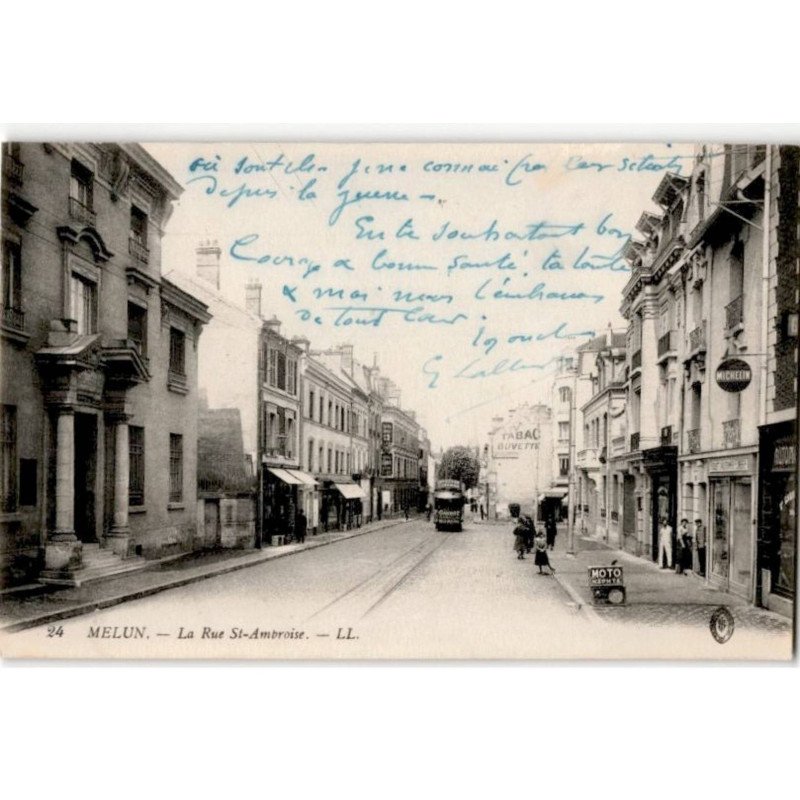 où sont ils je ne connai pas leur
Depuis la guerre
En te souhaitant bon
Courage & bonne santé, ta tante
& moi nous t'embrassons
De tout cœur
G
TABAC
BUVETTE
MICHELIN
MOTO
NAPHTA
24 MELUN. — La Rue St-Ambroise. — LL.